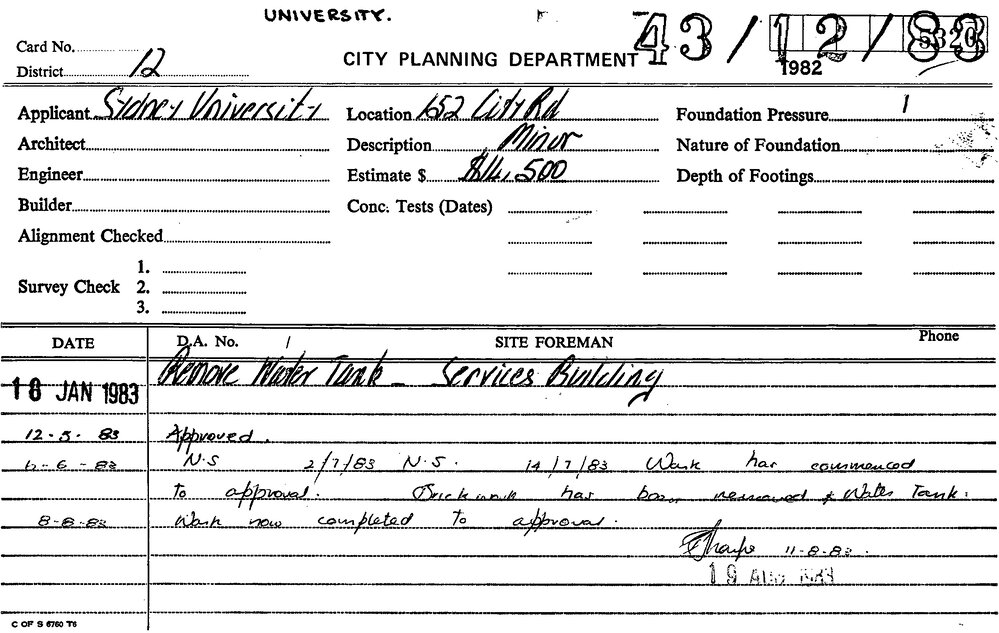 UNIVERSITY.
43/12/83
5320
Card No.
District 12
CITY PLANNING DEPARTMENT
1982
Applicant Sydney University
Location 652 City Rd
Foundation Pressure
Architect
Description Minor
Nature of Foundation
Engineer
Estimate $ 500
Depth of Footings
Builder
Conc. Tests (Dates)
Alignment Checked
Survey Check
1.
2.
3.
DATE D.A. No. SITE FOREMAN Phone
Remove Water Tank - Services Building
18 JAN 1983
12-5-83 Approved.
6-6-83 N.S 2/7/83 N.S. 14/7/83 Work has commenced
to approval. Brickwork has been removed & Water Tank.
8-8-83 Work now completed to approval.
11-8-83.
19 AUG 1983
C OF S 6760 T6